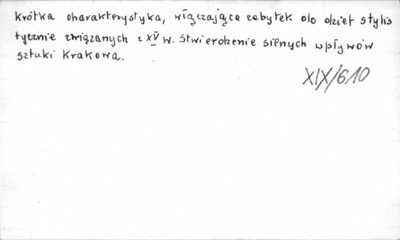 Krótka charakterystyka, włączająca zabytek do dzieł stylis
tycznie związanych z XV w. Stwierdzenie silnych wpływów
sztuki Krakowa.
XIX/610